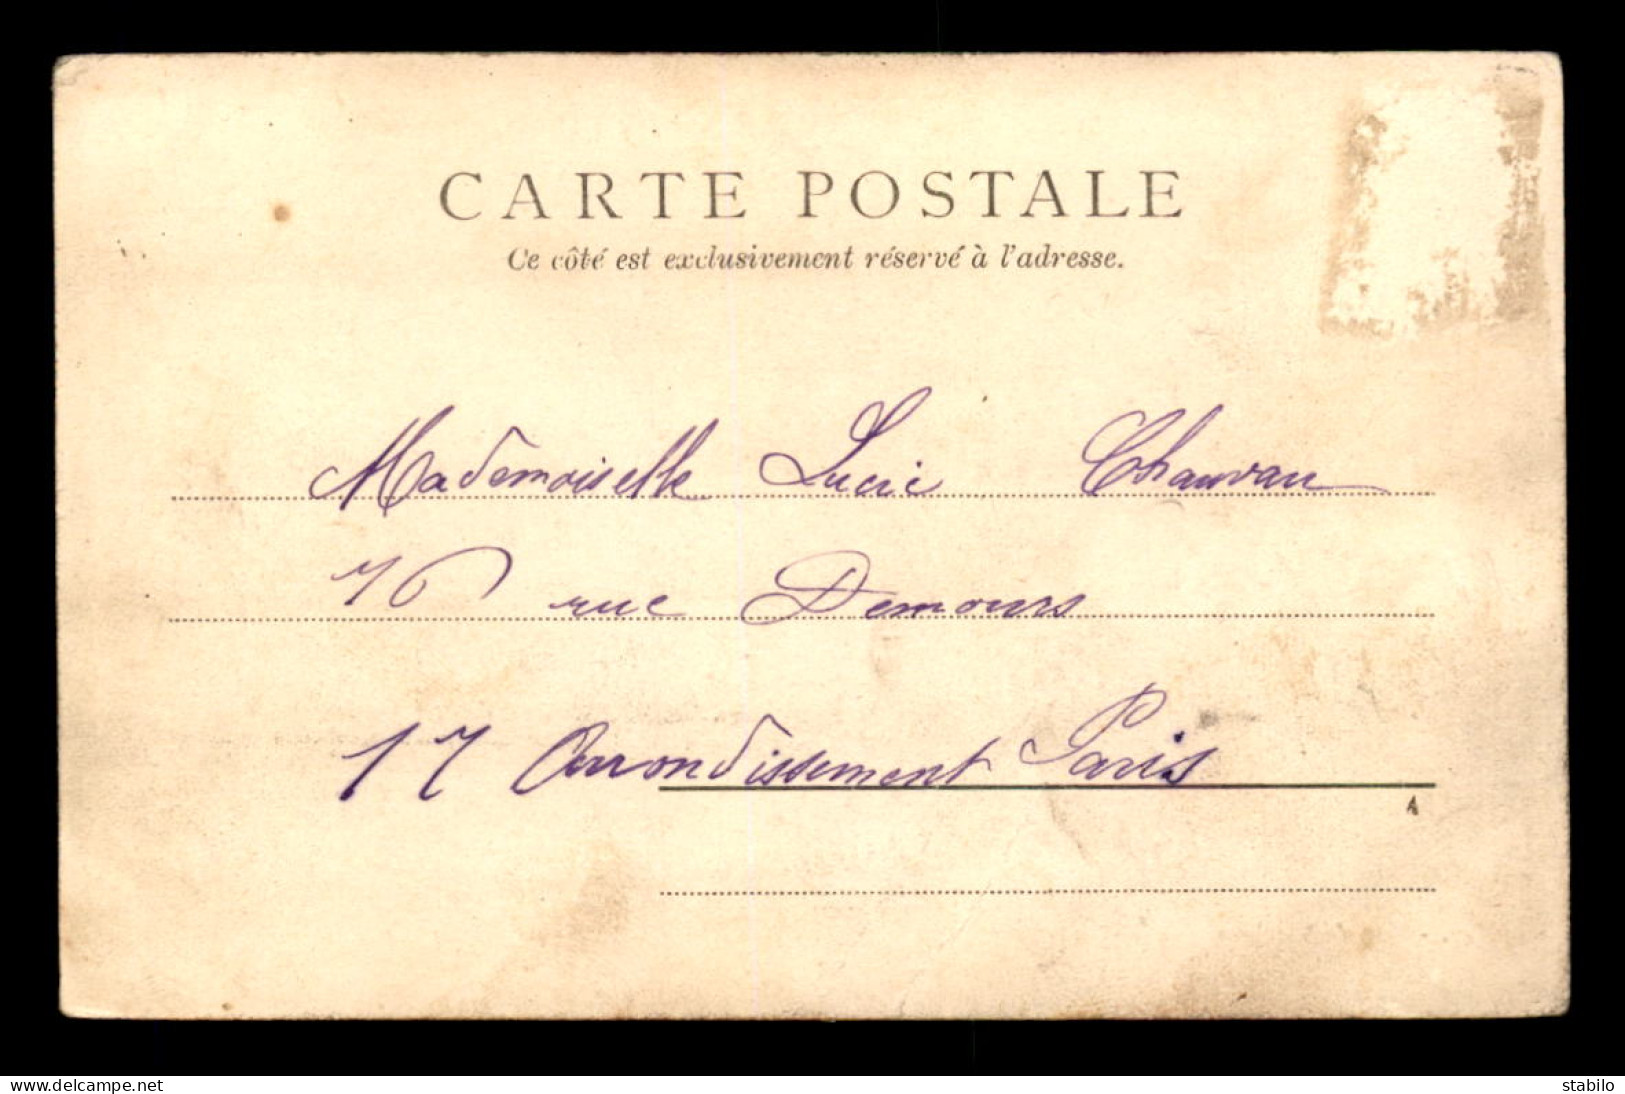 CARTE POSTALE
Ce côté est exclusivement réservé à l'adresse.
Mademoiselle Lucie Chauvau
76 rue Demours
17 Arrondissement Paris
A
www.delcampe.net
stabilo